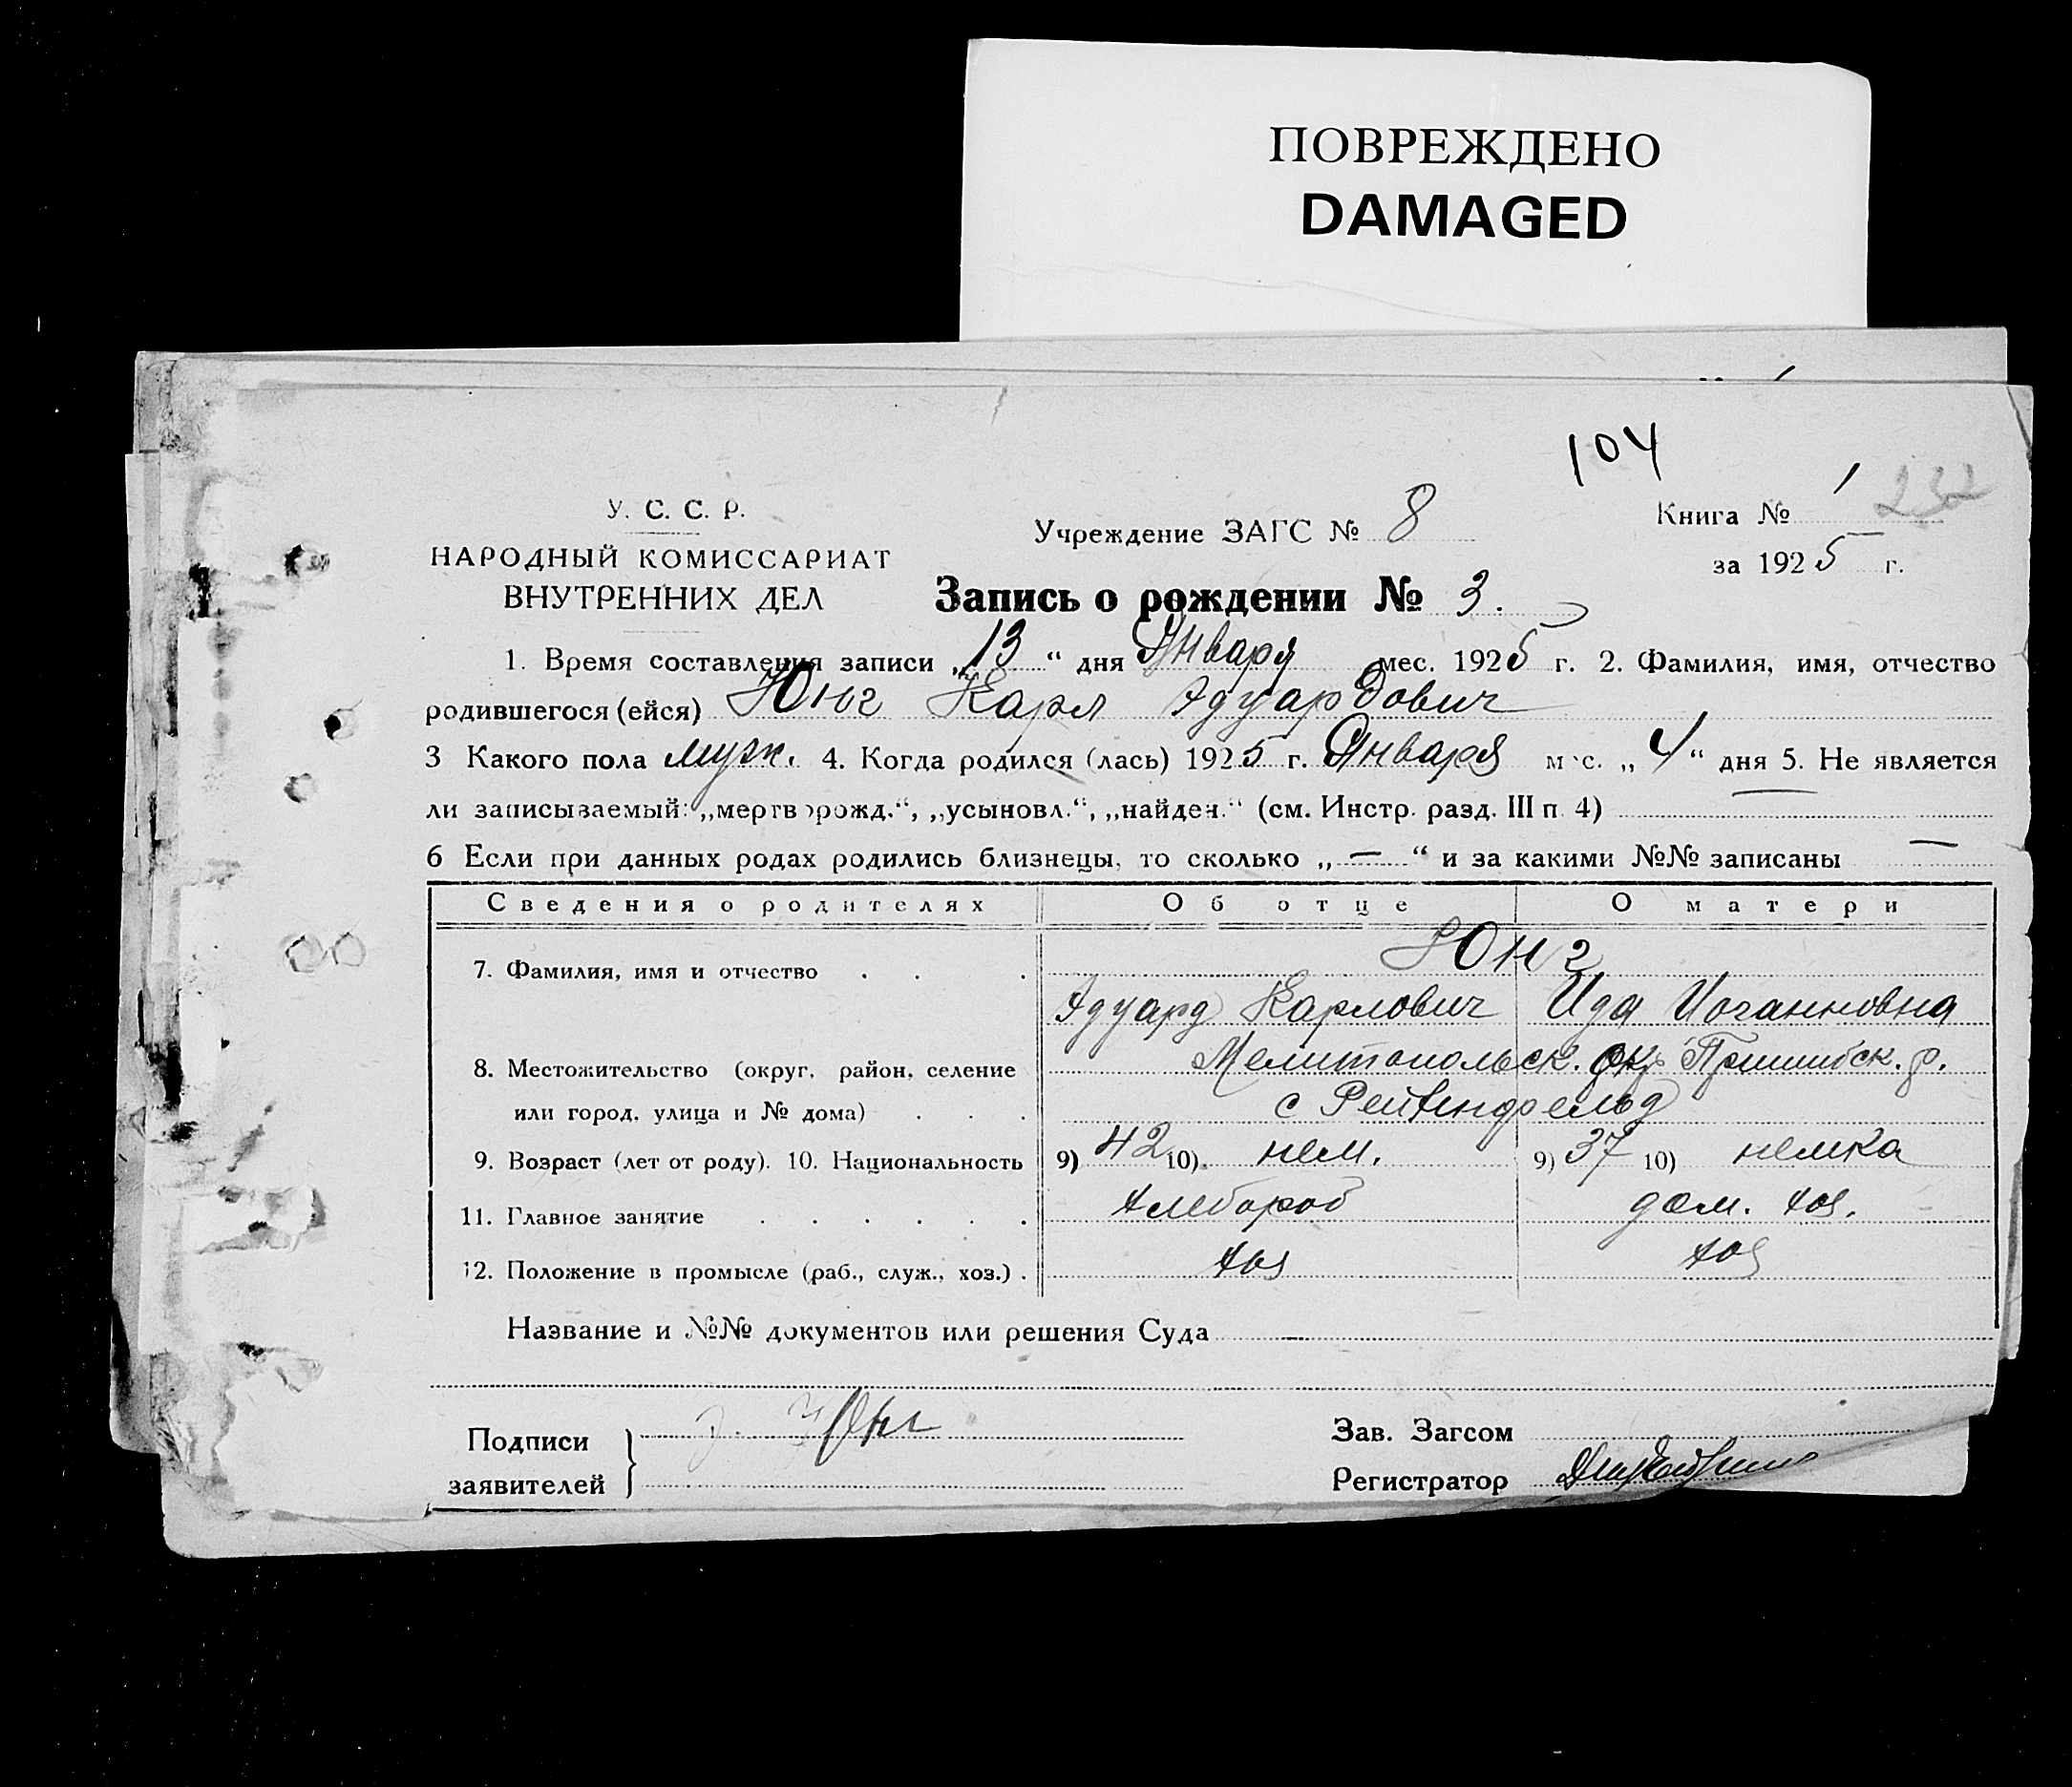 ПОВРЕЖДЕНО
DAMAGED
104
У. С. С. Р.
НАРОДНЫЙ КОМИССАРИАТ
ВНУТРЕННИХ ДЕЛ
Учреждение ЗАГС № 8
Книга № 1 232
за 1925 г.
Запись о рождении № 3.
1. Время составления записи „13“ дня Января мес. 1925 г. 2. Фамилия, имя, отчество
родившегося (ейся) Юнг Карл Эдуардович
3 Какого пола муж. 4. Когда родился (лась) 1925 г. Января мес. „4“ дня 5. Не является
ли записываемый: „мертворожд.“, „усыновл.“, „найден.“ (см. Инстр. разд. III п 4) —
6 Если при данных родах родились близнецы, то сколько „—“ и за какими №№ записаны —
Сведения о родителях Об отце О матери
Юнг
7. Фамилия, имя и отчество . . .
Эдуард Карлович Ида Иоганновна
8. Местожительство (округ, район, селение Мелитопольск. окр Пришибск. р.
или город, улица и № дома) . . . с Рейтенфельд
9. Возраст (лет от роду). 10. Национальность 9) 42 10). нем. 9) 37 10) немка
11. Главное занятие . . . . . . хлебороб дом. хоз.
12. Положение в промысле (раб., служ., хоз.) . хоз хоз
Название и №№ документов или решения Суда —
Подписи
заявителей
Э. Юнг
Зав. Загсом
Регистратор